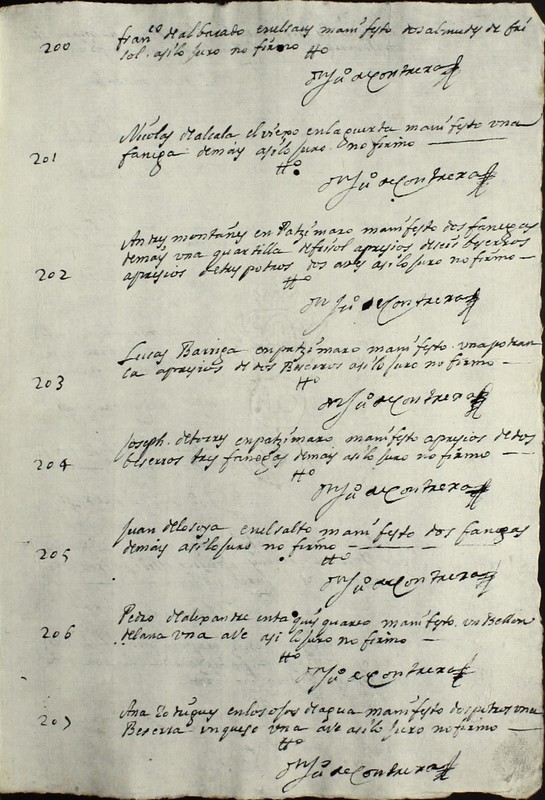 200 franco de albarado en el saus manifesto dos almudes de fri
sol. asi lo juro no firmo
Dn Juo de Contreras
201 Nicolas de alcala el viejo en la puerta manifesto vna
fanega de mais asi lo juro. no firmo
Dn Juo de Contreras
202 Andres montañes en Patzimaro manifesto dos fanegas
de mais vna quartilla de frisol apresios de seis beserros
apresios de tres potros dos aves asi lo juro no firmo
Dn Juo de Contreras
203 Lucas Barriga en patzimaro manifesto. vna potran
ca apresios de dos Beserros asi lo juro no firmo
Dn Juo de Contreras
204 Joseph. de torres en patzimaro manifesto apresios de dos
beserros tres fanegas de mais asi lo juro no firmo
Dn Juo de Contreras
205 Juan de losoya en el salto manifesto dos fanegas
de mais asi lo juro no firmo
Dn Juo de Contreras
206 Pedro de alexandre en manifesto. vn Bellon
de lana vna ave asi lo juro no firmo
Dn Juo de Contreras
207 Ana Rodrigues en los ojos de agua manifesto dos potros vna
Beserra vn queso vna ave asi lo juro no firmo
Dn Juo de Contreras